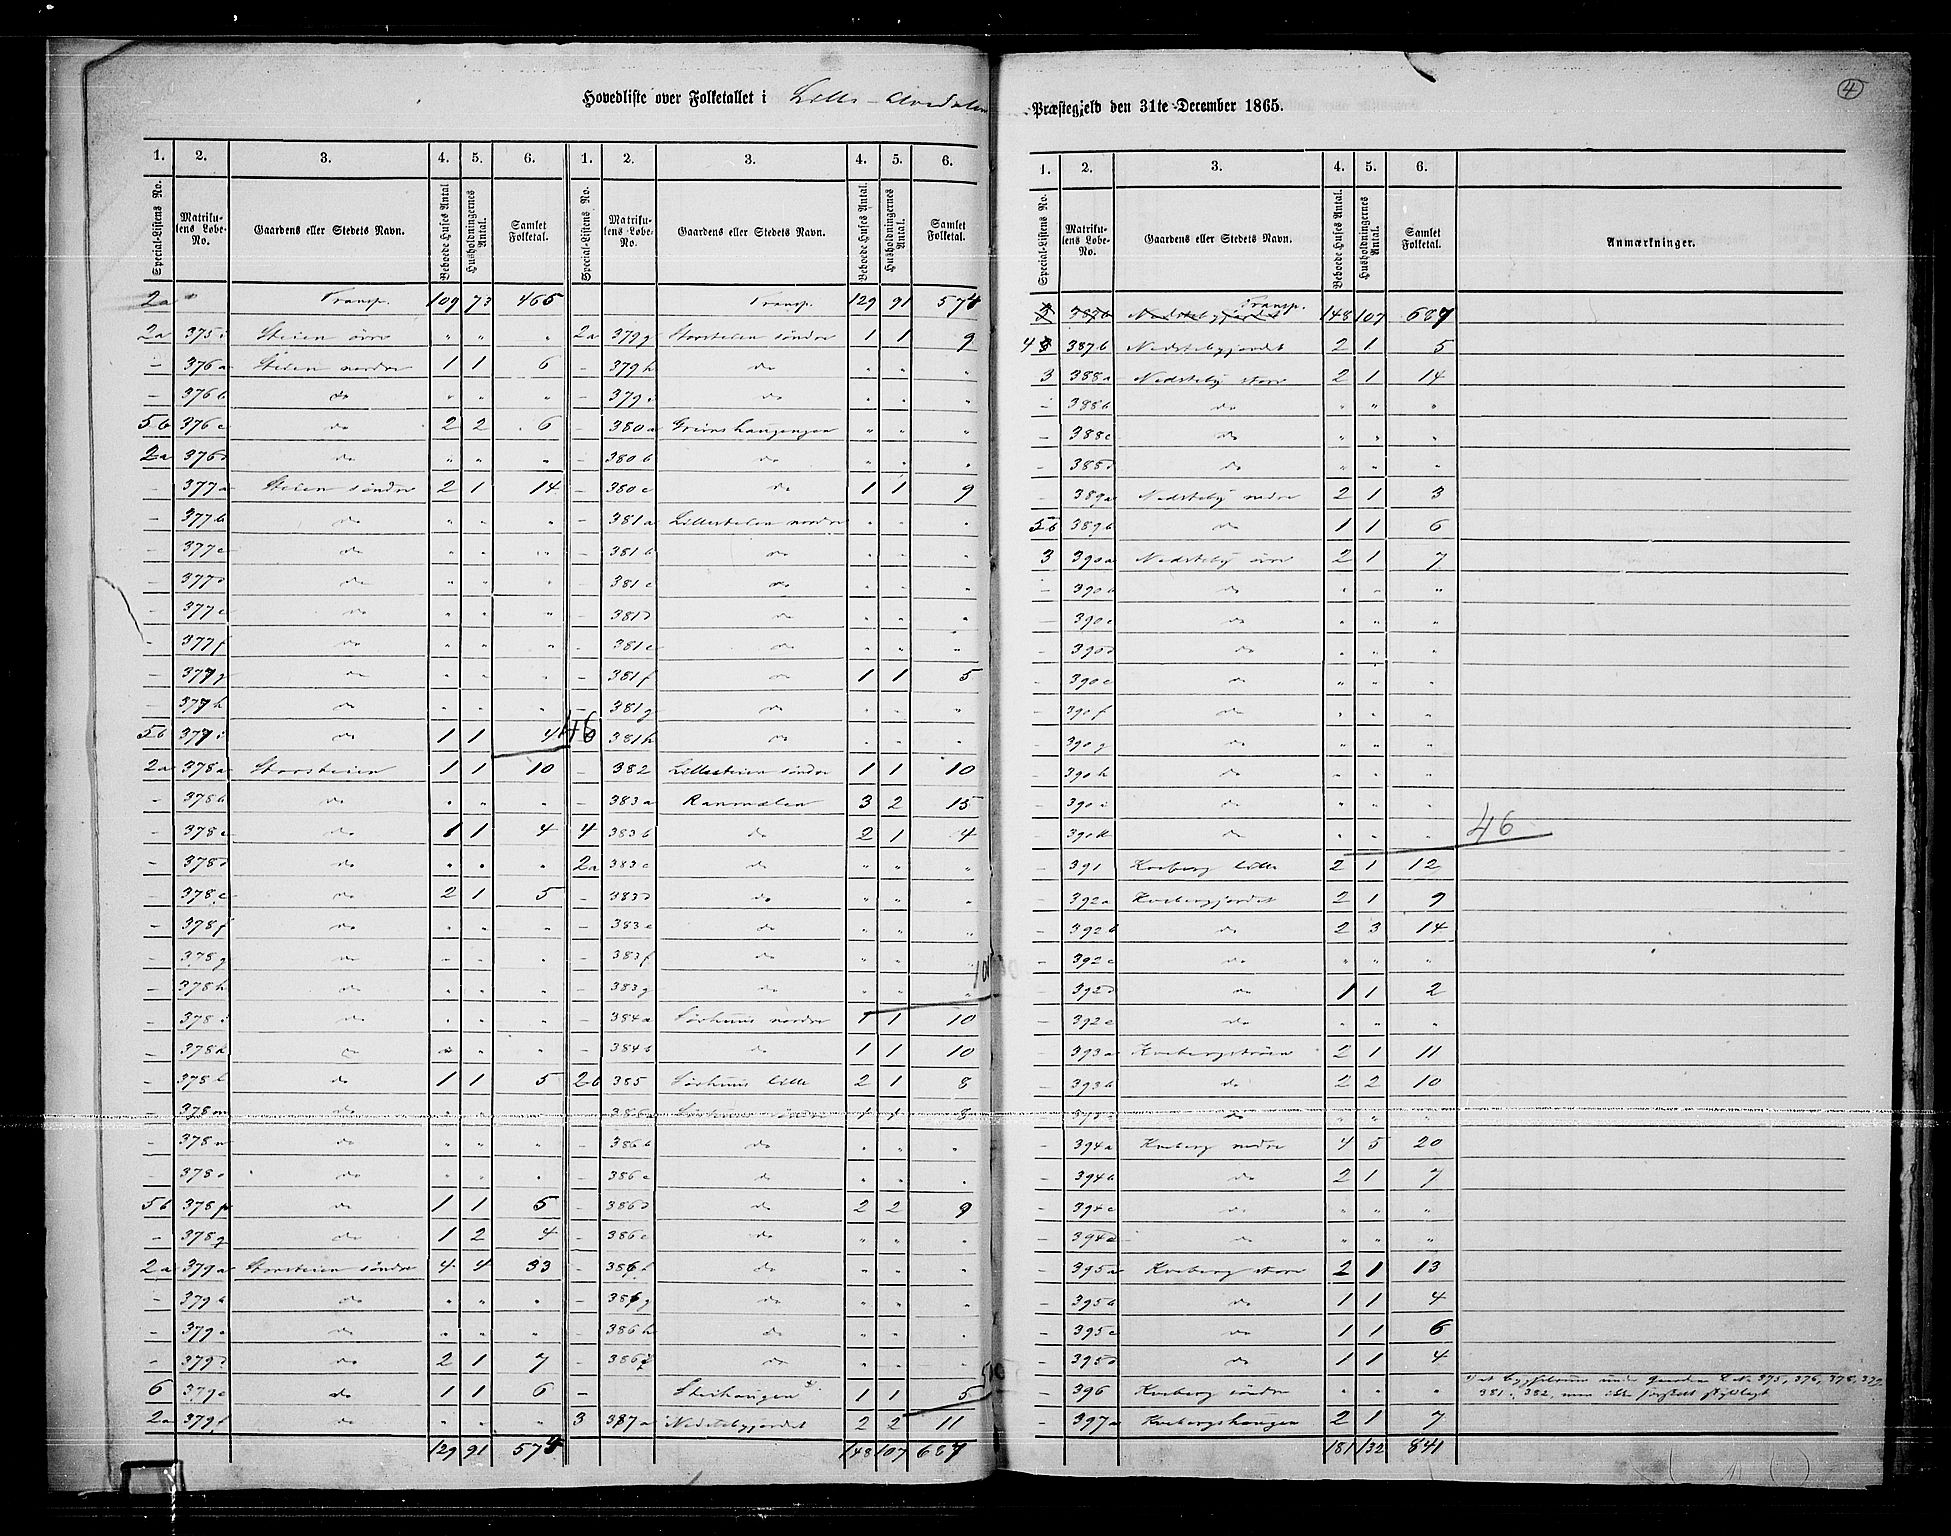 Hovedliste over Folketallet i Lille-Elvedalen Præstegjeld den 31te December 1865.
4
1. 2. 3. 4. 5. 6. 1. 2. 3. 4. 5. 6.
Special-Listens No. Matrikulens Løbe-No. Gaardens eller Stedets Navn. Beboede Huses Antal Husholdningernes Antal. Samlet Folketal. Special-Listens No. Matrikulens Løbe-No. Gaardens eller Stedets Navn. Beboede Huses Antal. Husholdningernes Antal. Samlet Folketal.
2a " Transp. 109 73 465 Transp. 129 91 574
2a 375i Steien øvre " " " 2a 379g Storsteien søndre 1 1 9
- 376a Steien nordre 1 1 6 - 379h do " " "
- 376b do " " " - 379i do " " "
5b 376c do 2 2 6 - 380a Grimshaugengen " " "
2a 376d do " " " - 380b do " " "
- 377a Steien søndre 2 1 14 - 380c do 1 1 9
- 377b do " " " - 381a Lillesteien nordre " " "
- 377c do " " " - 381b do " " "
- 377d do " " " - 381c do " " "
- 377e do " " " - 381d do " " "
- 377f do " " " - 381e do " " "
- 377g do " " " - 381f do 1 1 5
- 377h do " " " - 381g do " " "
5b 377i do 1 1 4 46 381h do " " "
2a 378a Storsteien 1 1 10 - 382 Lillesteien søndre 1 1 10
- 378b do " " " - 383a Ranmælen 3 2 15
- 378c do 1 1 4 4 383b do 2 1 4
- 378d do " " " 2a 383c do " " "
- 378e do 2 1 5 - 383d do " " "
- 378f do " " " - 383e do " " "
- 378g do " " " - 383f do " " "
- 378h do " " " - 383g do " " "
- 378i do " " " - 384a Sørhuus nordre 1 1 10
- 378k do " " " - 384b do 1 1 10
- 378l do 1 1 5 2b 385 Sørhuus lille 2 1 8
- 378m do " " " - 386a Sørhuus søndre 1 1 8
- 378n do " " " - 386b do " " "
- 378o do " " " - 386c do " " "
5b 378p do 1 1 5 - 386d do 2 2 9
- 378q do 1 2 4 - 386e do " " "
2a 379a Storsteien søndre 4 4 33 - 386f do " " "
- 379b do " " " - 386g do " " "
- 379c do " " " - 386h do " " "
- 379d do 2 1 7 - 386i do " " "
6 379e do 1 1 6 - Steihaugen 1 1 5
2a 379f do " " " 3 387a Nedstebygjordet 2 2 11
129 91 574 148 107 687
1. 2. 3. 4. 5. 6.
Special-Listens No. Matrikulens Løbe-No. Gaardens eller Stedets Navn. Beboede Huses Antal. Husholdningernes Antal. Samlet Folketal. Anmærkninger.
3 387b Nedstebygjordet Transp. 148 107 687
4 3 387b Nedstebygjordet 2 1 5
3 388a Nedsteby store 2 1 14
- 388b do " " "
- 388c do " " "
- 388d do " " "
- 389a Nedsteby nedre 2 1 3
5b 389b do 1 1 6
3 390a Nedsteby øvre 2 1 7
- 390b do " " "
- 390c do " " "
- 390d do " " "
- 390e do " " "
- 390f do " " "
- 390g do " " "
- 390h do " " "
- 390i do " " "
- 390k do " " " 46
- 391 Kveberg lille 2 1 12
- 392a Kvebergjordet 2 1 9
- 392b do 2 3 14
- 392c do " " "
- 392d do 1 1 2
- 392e do " " "
- 393a Kvebergstrøen 2 1 11
- 393b do 2 2 10
- 393c do " " "
- 394a Kveberg nedre 4 5 20
- 394b do 2 1 7
- 394c do " " "
- 394d do " " "
- 395a Kveberg store 2 1 13
- 395b do 1 1 4
- 395c do 1 1 6
- 395d do 1 1 4
- 396 Kveberg søndre " " "
- 397a Kvebergshaugen 2 1 7
181 132 841
et under Gaarden L No 375, 376, 378, 379,
381, 382, men ikke